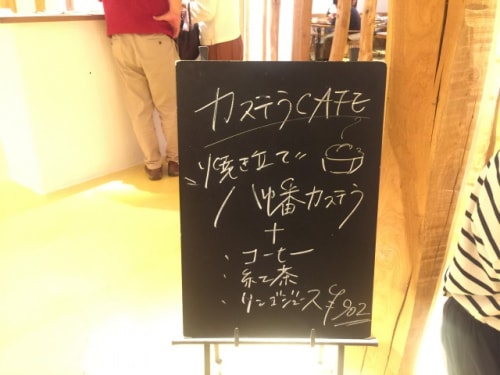 カステラCAFE
"焼き立て"
八番カステラ
+
・コーヒー
・紅茶
・リンゴジュース ¥902